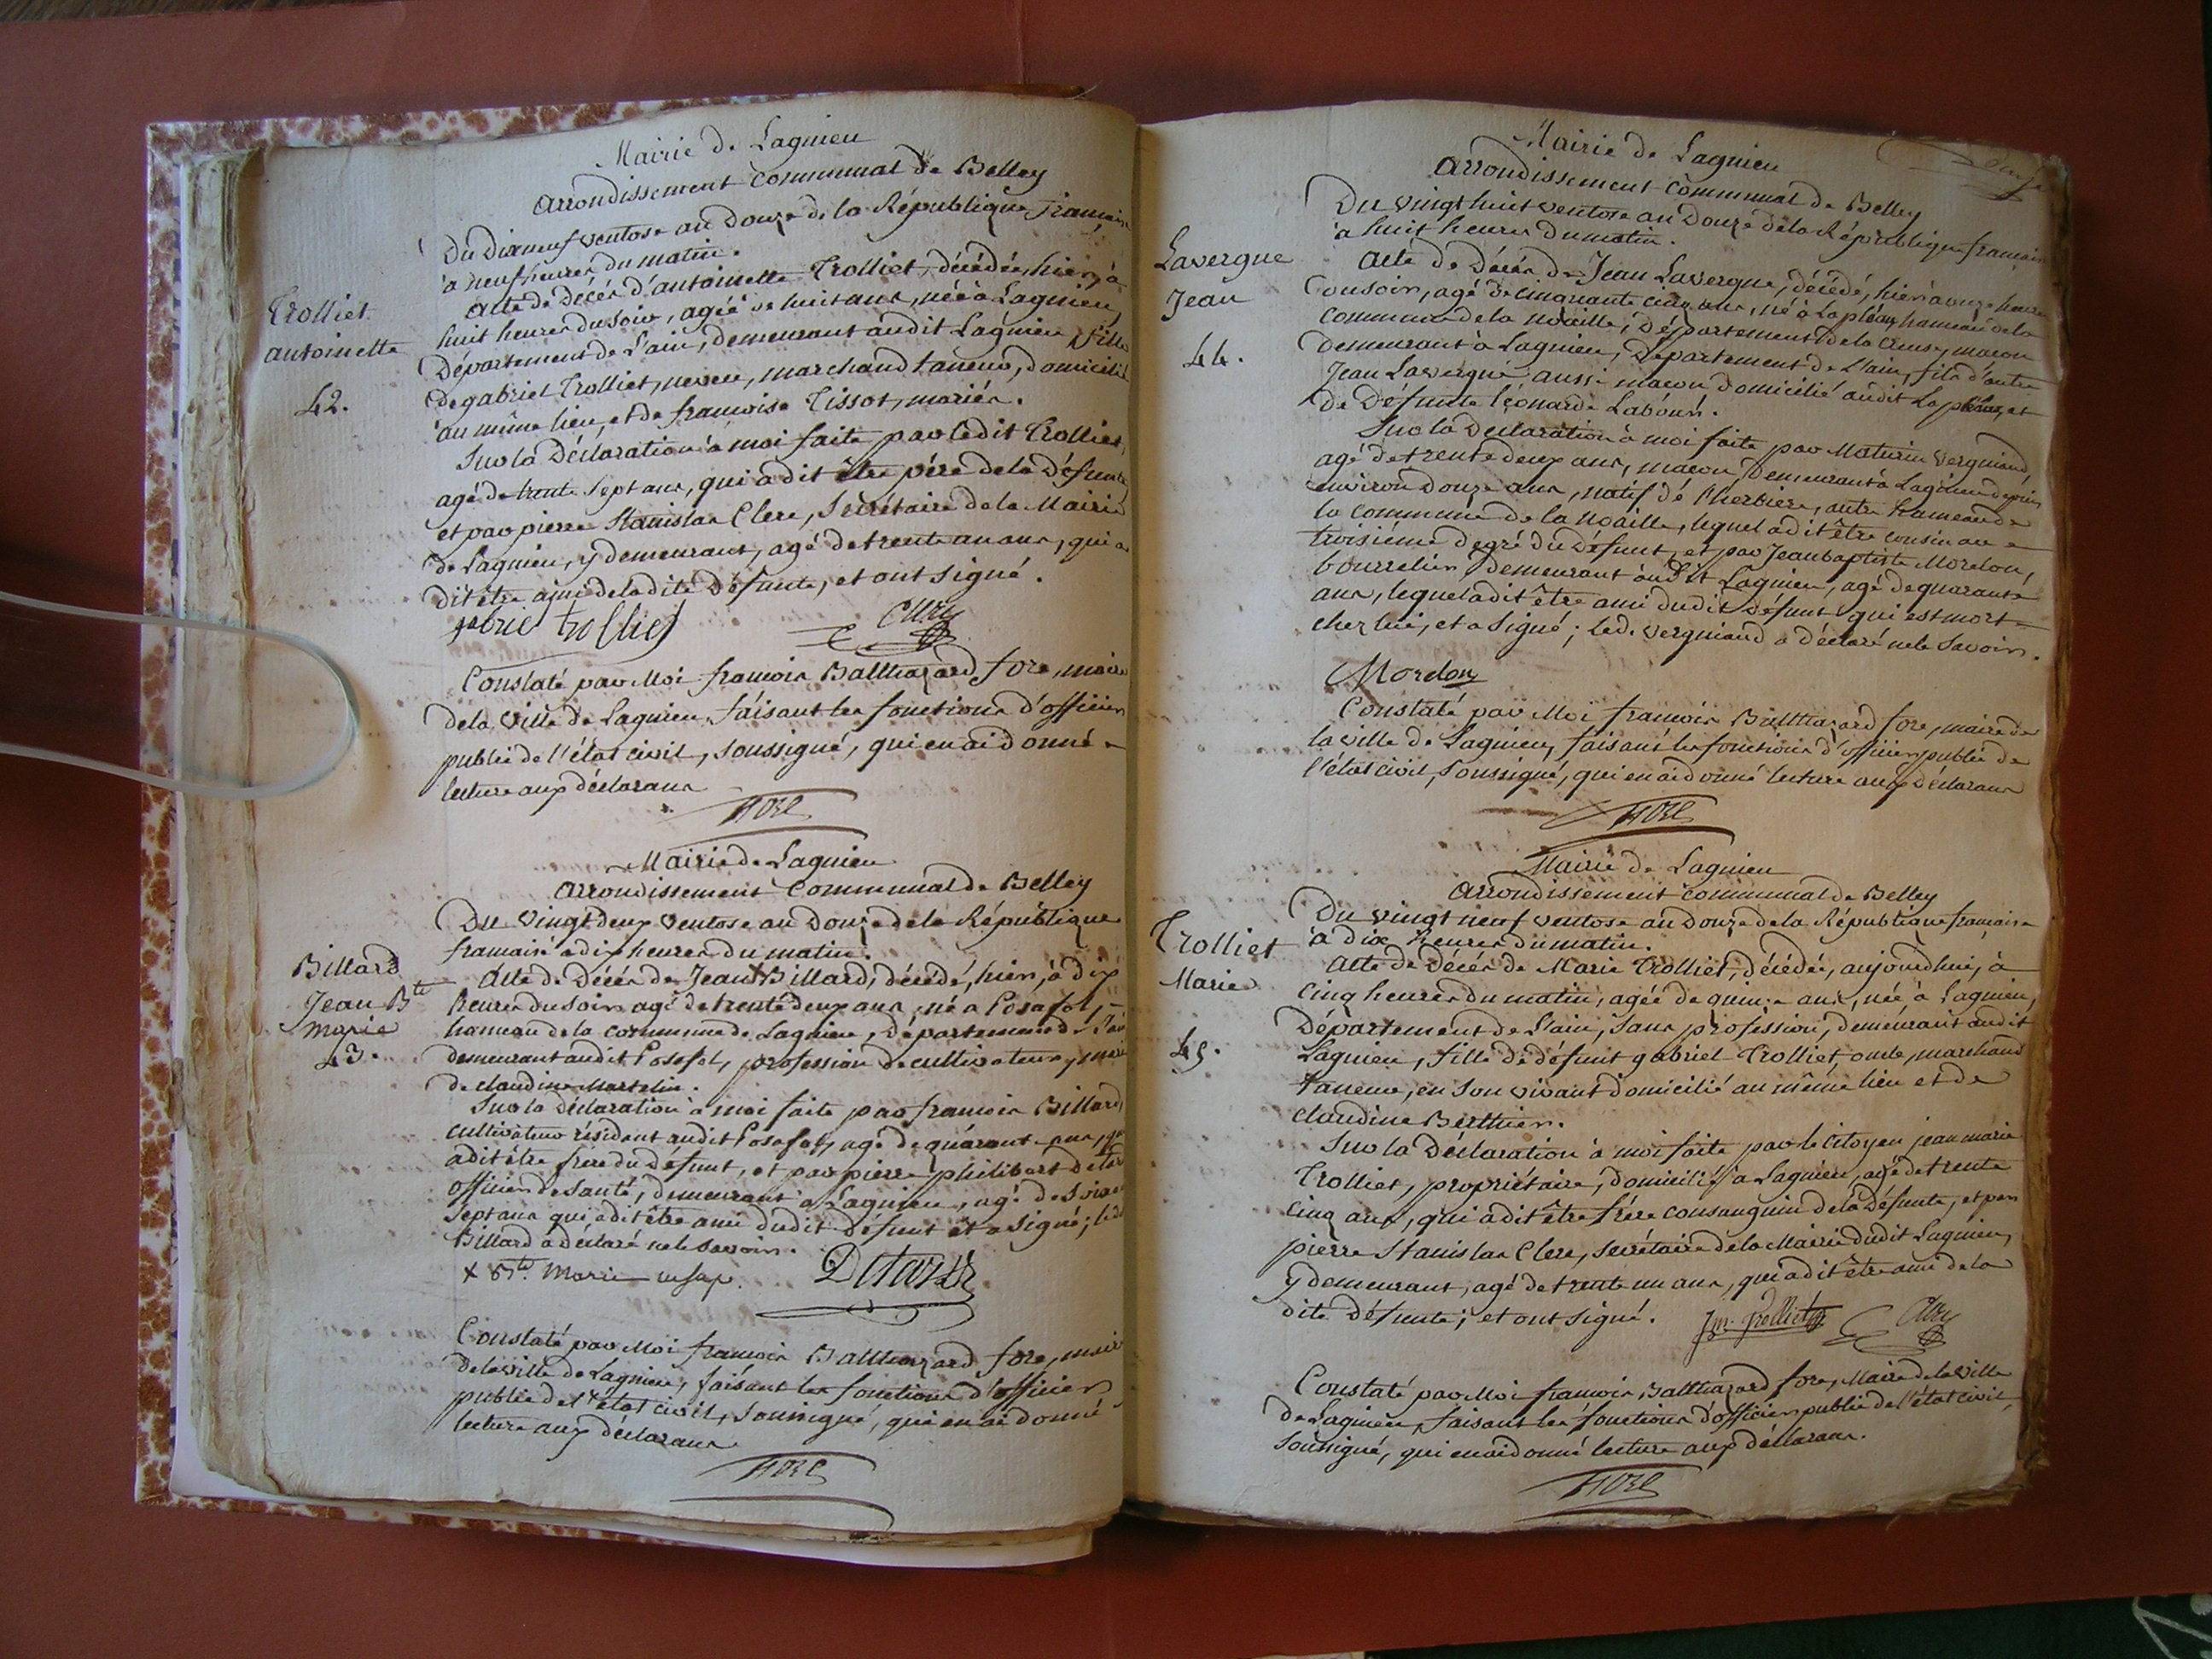 Mairie de Lagnieu
Arrondissement communal de Belley
Du Dixneuf ventose an Douze de la République française
à neuf heures du matin.
Trolliet
antoinette
42.
Acte de Décès d'antoinette Trolliet, décédée, hier, à
huit heures du soir, agée de huit ans, née à Lagnieu,
Département de l'ain, demeurant audit Lagnieu, fille
de gabriel Trolliet, neveu, marchand tanneur, domicilié
au même lieu, et de françoise Tissot, mariés.
Sur la Déclaration à moi faite par ledit Trolliet,
agé de trente sept ans, qui a dit être père de la Défunte
et par pierre Stanislas Clerc, Secrétaire de la Mairie
de Lagnieu, y demeurant, agé de trente un ans, qui a
dit être ami de ladite Défunte, et ont signé.
gabriel trolliet Clerc
Constaté par Moi françois Balthazard fore, maire
de la ville de Lagnieu, faisant les fonctions d'officier
public de l'état civil, soussigné, qui en ai donné
lecture aux déclarans
FORE
Mairie de Lagnieu
Arrondissement communal de Belley
Du vingt deux ventose an Douze de la République
française à dix heures du matin.
Billard
Jean Bte
Marie
43.
Acte de Décès de Jean + Billard, décédé, hier, à dix
heures du soir agé de trente deux ans, né a Posafol,
hameau de la commune de Lagnieu, département de l'ain
demeurant audit Posafol, profession de cultivateur, mari
de claudine Martelin.
Sur la déclaration à moi faite par françois Billard,
cultivateur résidant audit Posafol, agé de quarante ans, qui
a dit être frere du Défunt, et par pierre philibert
officier de santé, demeurant à Lagnieu, agé de
sept ans qui a dit être ami dudit défunt et a signé; ledit
Billard a déclaré ne le savoir.
+ Bte. Marie
Constaté par Moi françois Balthazard fore, maire
de la ville de Lagnieu, faisant les fonctions d'officier
public de l'état civil, soussigné, qui en ai donné
lecture aux déclarans.
FORE
Mairie de Lagnieu
Arrondissement communal de Belley
Du vingt huit ventose an Douze de la République française
à huit heures du matin.
Lavergne
Jean
44.
Acte de Décès de Jean Lavergne, décédé, hier à onze heures
du soir, agé de cinquante cinq ans, né à hameau de la
commune de la Noaille, Département de la creuse, maçon
demeurant à Lagnieu, Département de l'ain, fils d'autre
Jean Lavergne aussi maçon domicilié audit et
de Défunte léonarde
Sur la Déclaration à moi faite par Maturin Vergniaud,
agé de trente deux ans, maçon, demeurant à Lagnieu depuis
environ douze ans, natif de autre hameau de
la commune de la Noaille, lequel a dit être cousin au
troisième degré du Défunt, et par Jean baptiste Morelon,
bourrelier, demeurant audit Lagnieu, agé de quarante
ans, lequel a dit être ami dudit défunt qui est mort
chez lui, et a signé; led. vergniaud a déclaré ne le savoir.
Morelon
Constaté par Moi françois Balthazard fore, maire de
la ville de Lagnieu, faisant les fonctions d'officier public de
l'état civil, soussigné, qui en ai donné lecture aux déclarans
FORE
Mairie de Lagnieu
Arrondissement communal de Belley
Du vingt neuf ventose an Douze de la République française
à dix heures du matin.
Trolliet
Marie
45.
Acte de décès de Marie Trolliet, décédée, aujourdhui, à
cinq heures du matin, agée de quinze ans, née à Lagnieu,
Département de l'ain, sans profession, demeurant audit
Lagnieu, fille de défunt gabriel Trolliet, oncle, marchand
tanneur, en son vivant domicilié au même lieu et de
claudine Berthier.
Sur la Déclaration à moi faite par le citoyen jean marie
Trolliet, propriétaire, domicilié à Lagnieu, agé de trente
cinq ans, qui a dit être frère consanguin de la Défunte, et par
pierre Stanislas Clerc, secrétaire de la Mairie dudit Lagnieu,
y demeurant, agé de trente un ans, qui a dit être ami de la
dite défunte; et ont signé. Jm. Trolliet Clerc
Constaté par Moi françois Balthazard fore, Maire de la ville
de Lagnieu, faisant les fonctions d'officier public de l'état civil,
soussigné, qui en ai donné lecture aux déclarans.
FORE